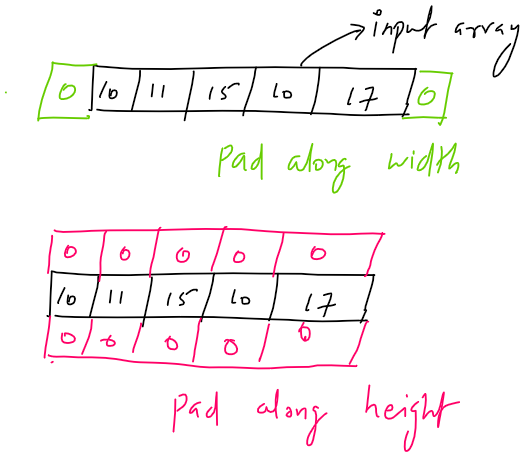 input array
0 10 11 15 10 17 0
Pad along width
0 0 0 0 0
10 11 15 10 17
0 0 0 0 0
Pad along height